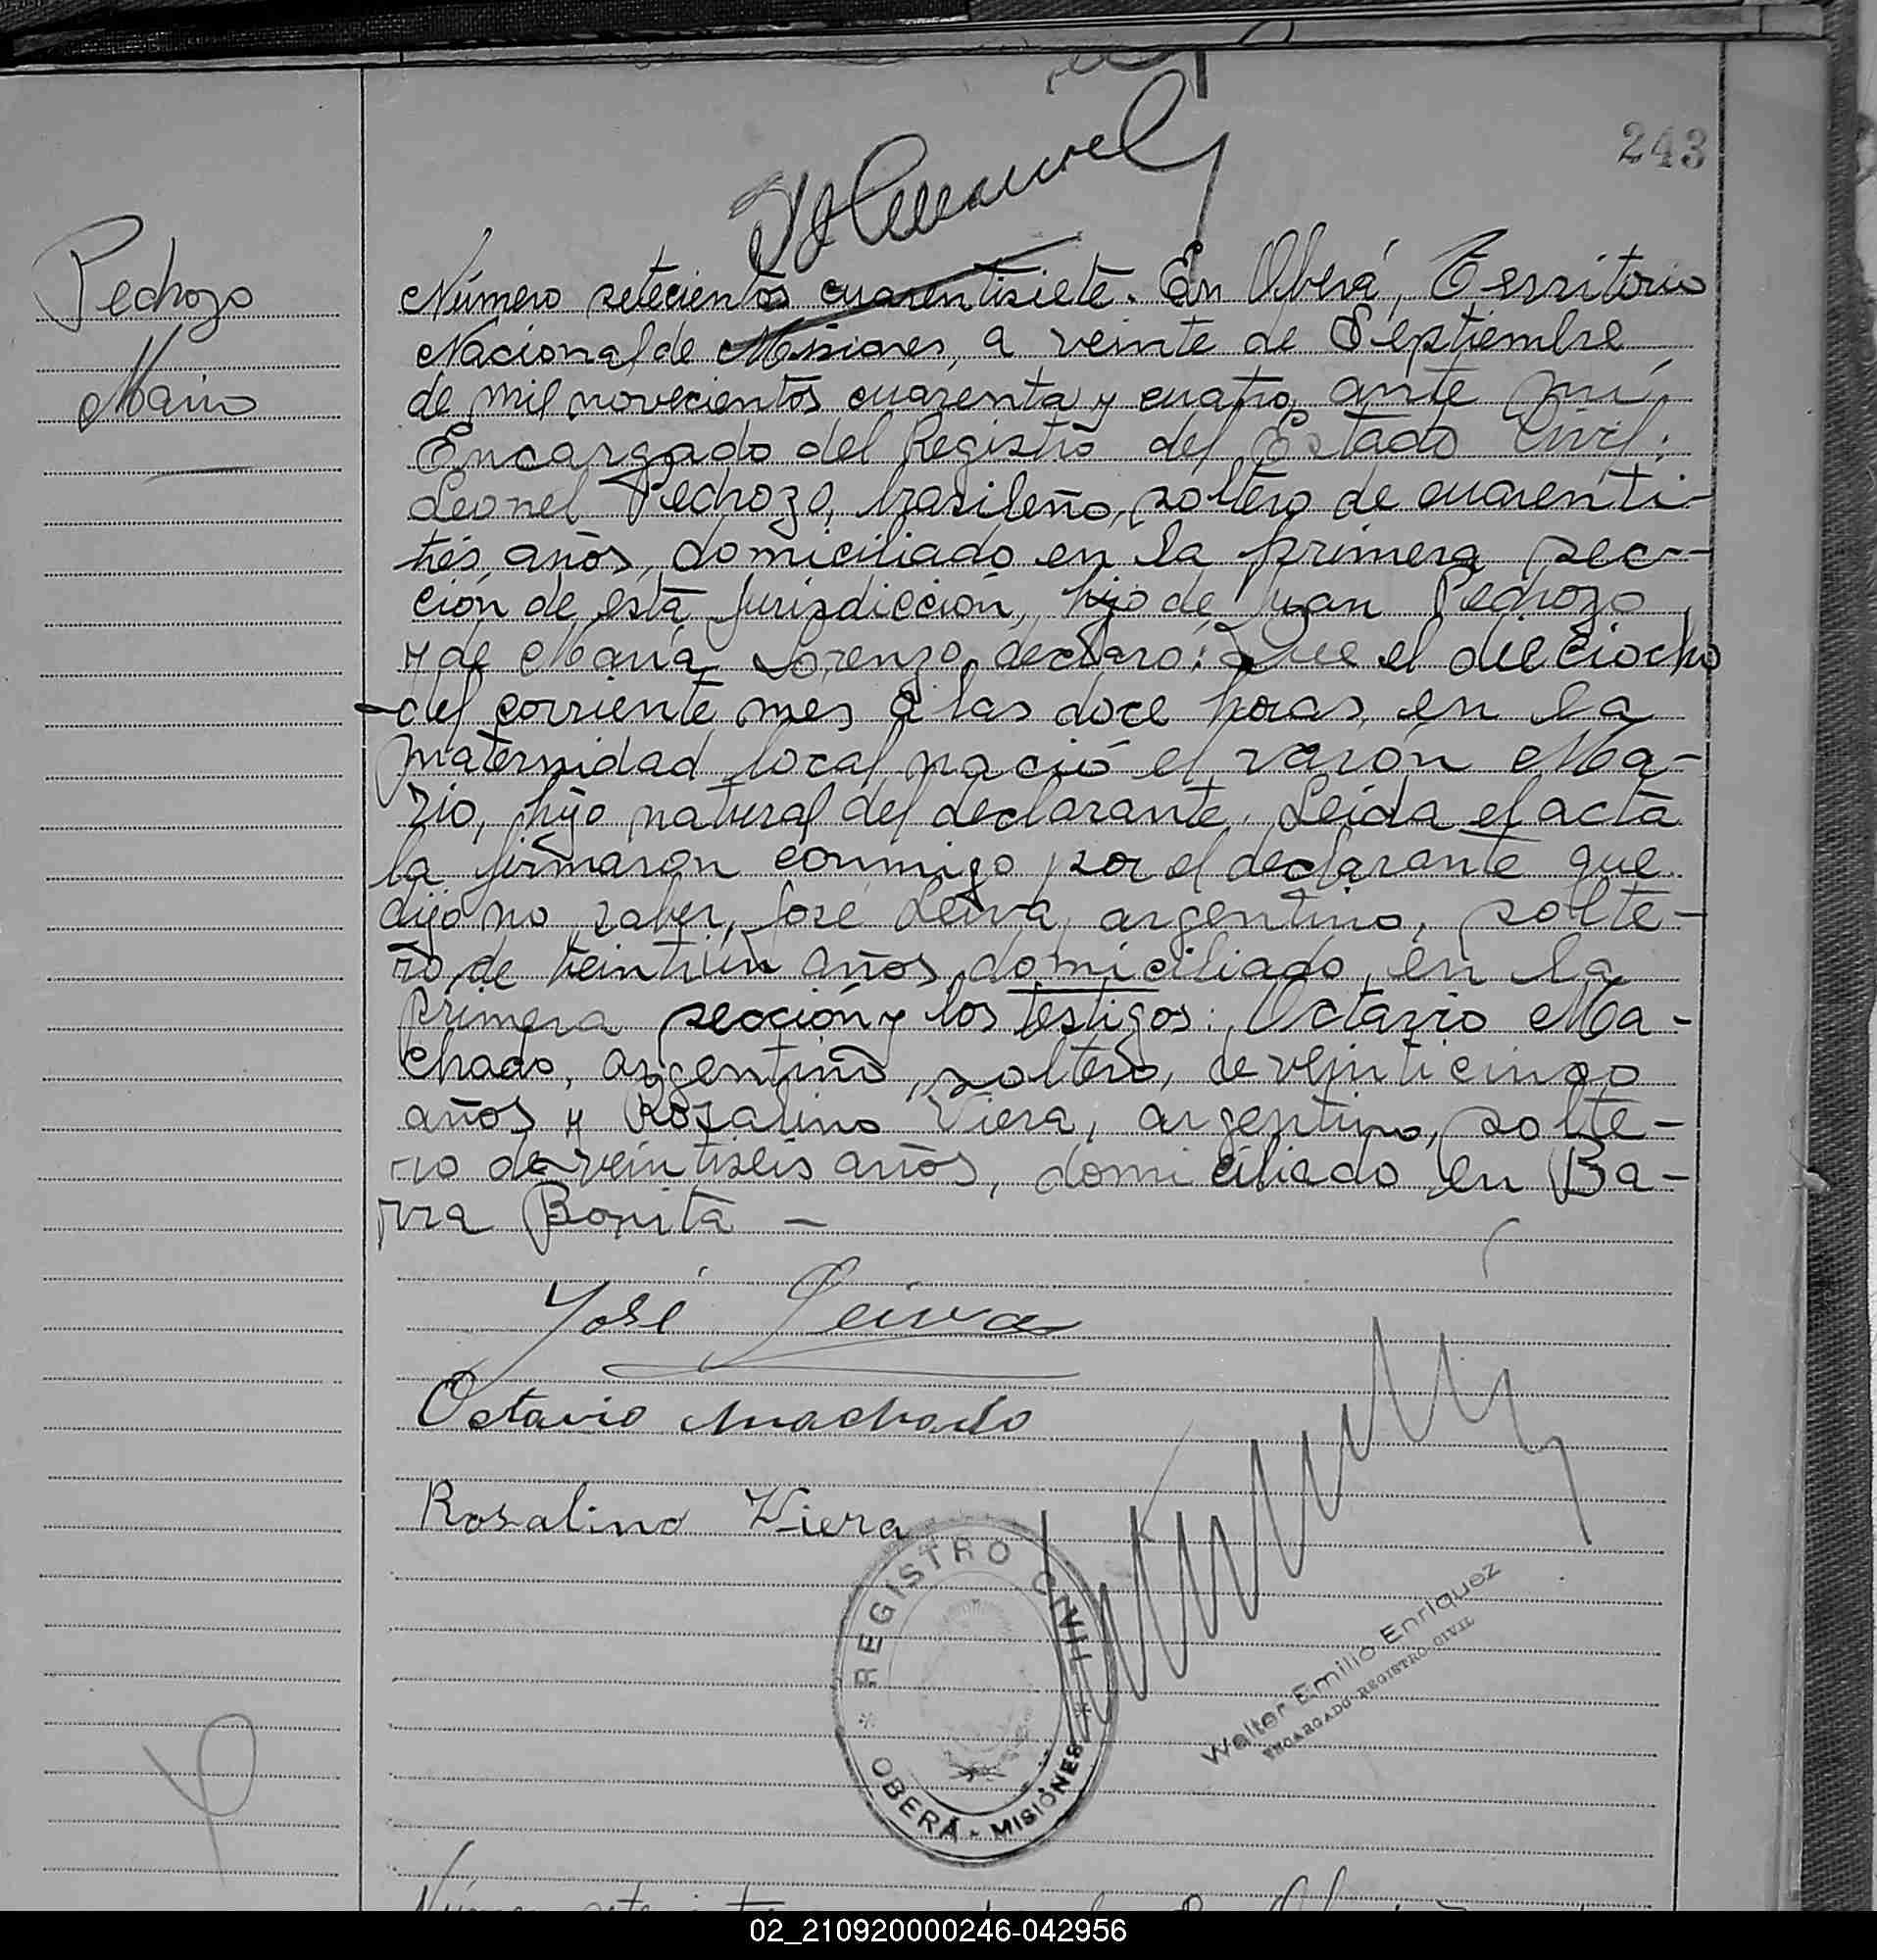 243
Pedrozo
Mario
Número setecientos cuarentisiete. En Oberá, Territorio
Nacional de Misiones, a veinte de Septiembre
de mil novecientos cuarenta y cuatro, ante mí,
Encargado del Registro del Estado Civil:
Leonel Pedrozo, brasileño, soltero de cuarenti-
trés años, domiciliado en la primera sec-
ción de esta jurisdicción, hijo de Juan Pedrozo
y de María Lorenzo, declaró: Que el dieciocho
del corriente mes a las doce horas, en la
maternidad local nació el varón Ma-
rio, hijo natural del declarante. Leída el acta
la firmaron conmigo por el declarante que
dijo no saber, José Leiva, argentino, solte-
ro de años, domiciliado en la
primera sección y los testigos: Octavio Ma-
chado, argentino, soltero, de veinticinco
años y Rosalino Viera, argentino, solte-
ro de veintiseis años, domiciliado en Ba-
rra Bonita –
José Leiva
Octavio Machado
Rosalino Viera
REGISTRO CIVIL
* OBERÁ - MISIONES *
Walter Emilio Enriquez
ENCARGADO REGISTRO CIVIL
02_210920000246-042956